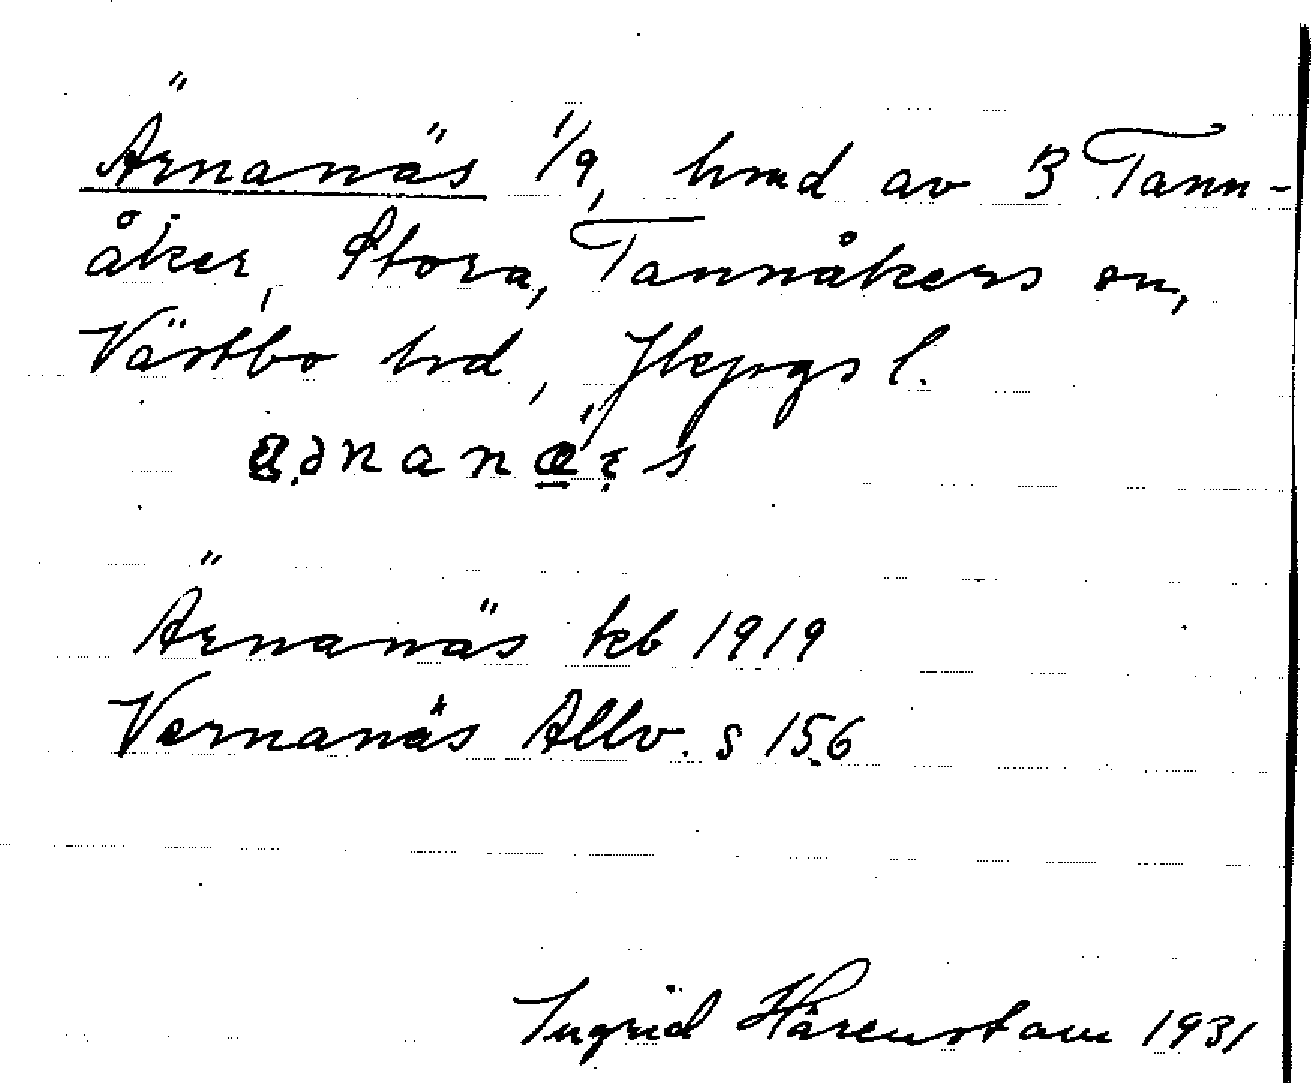 Ärnanäs 1/9, hmd av 3 Tann-
åker, Stora, Tannåkers sn,
Västbo hd, Jkpgs l.
Ärnanäs kb 1919
Vernanäs Allv. s 156
Ingrid Härenstam 1931